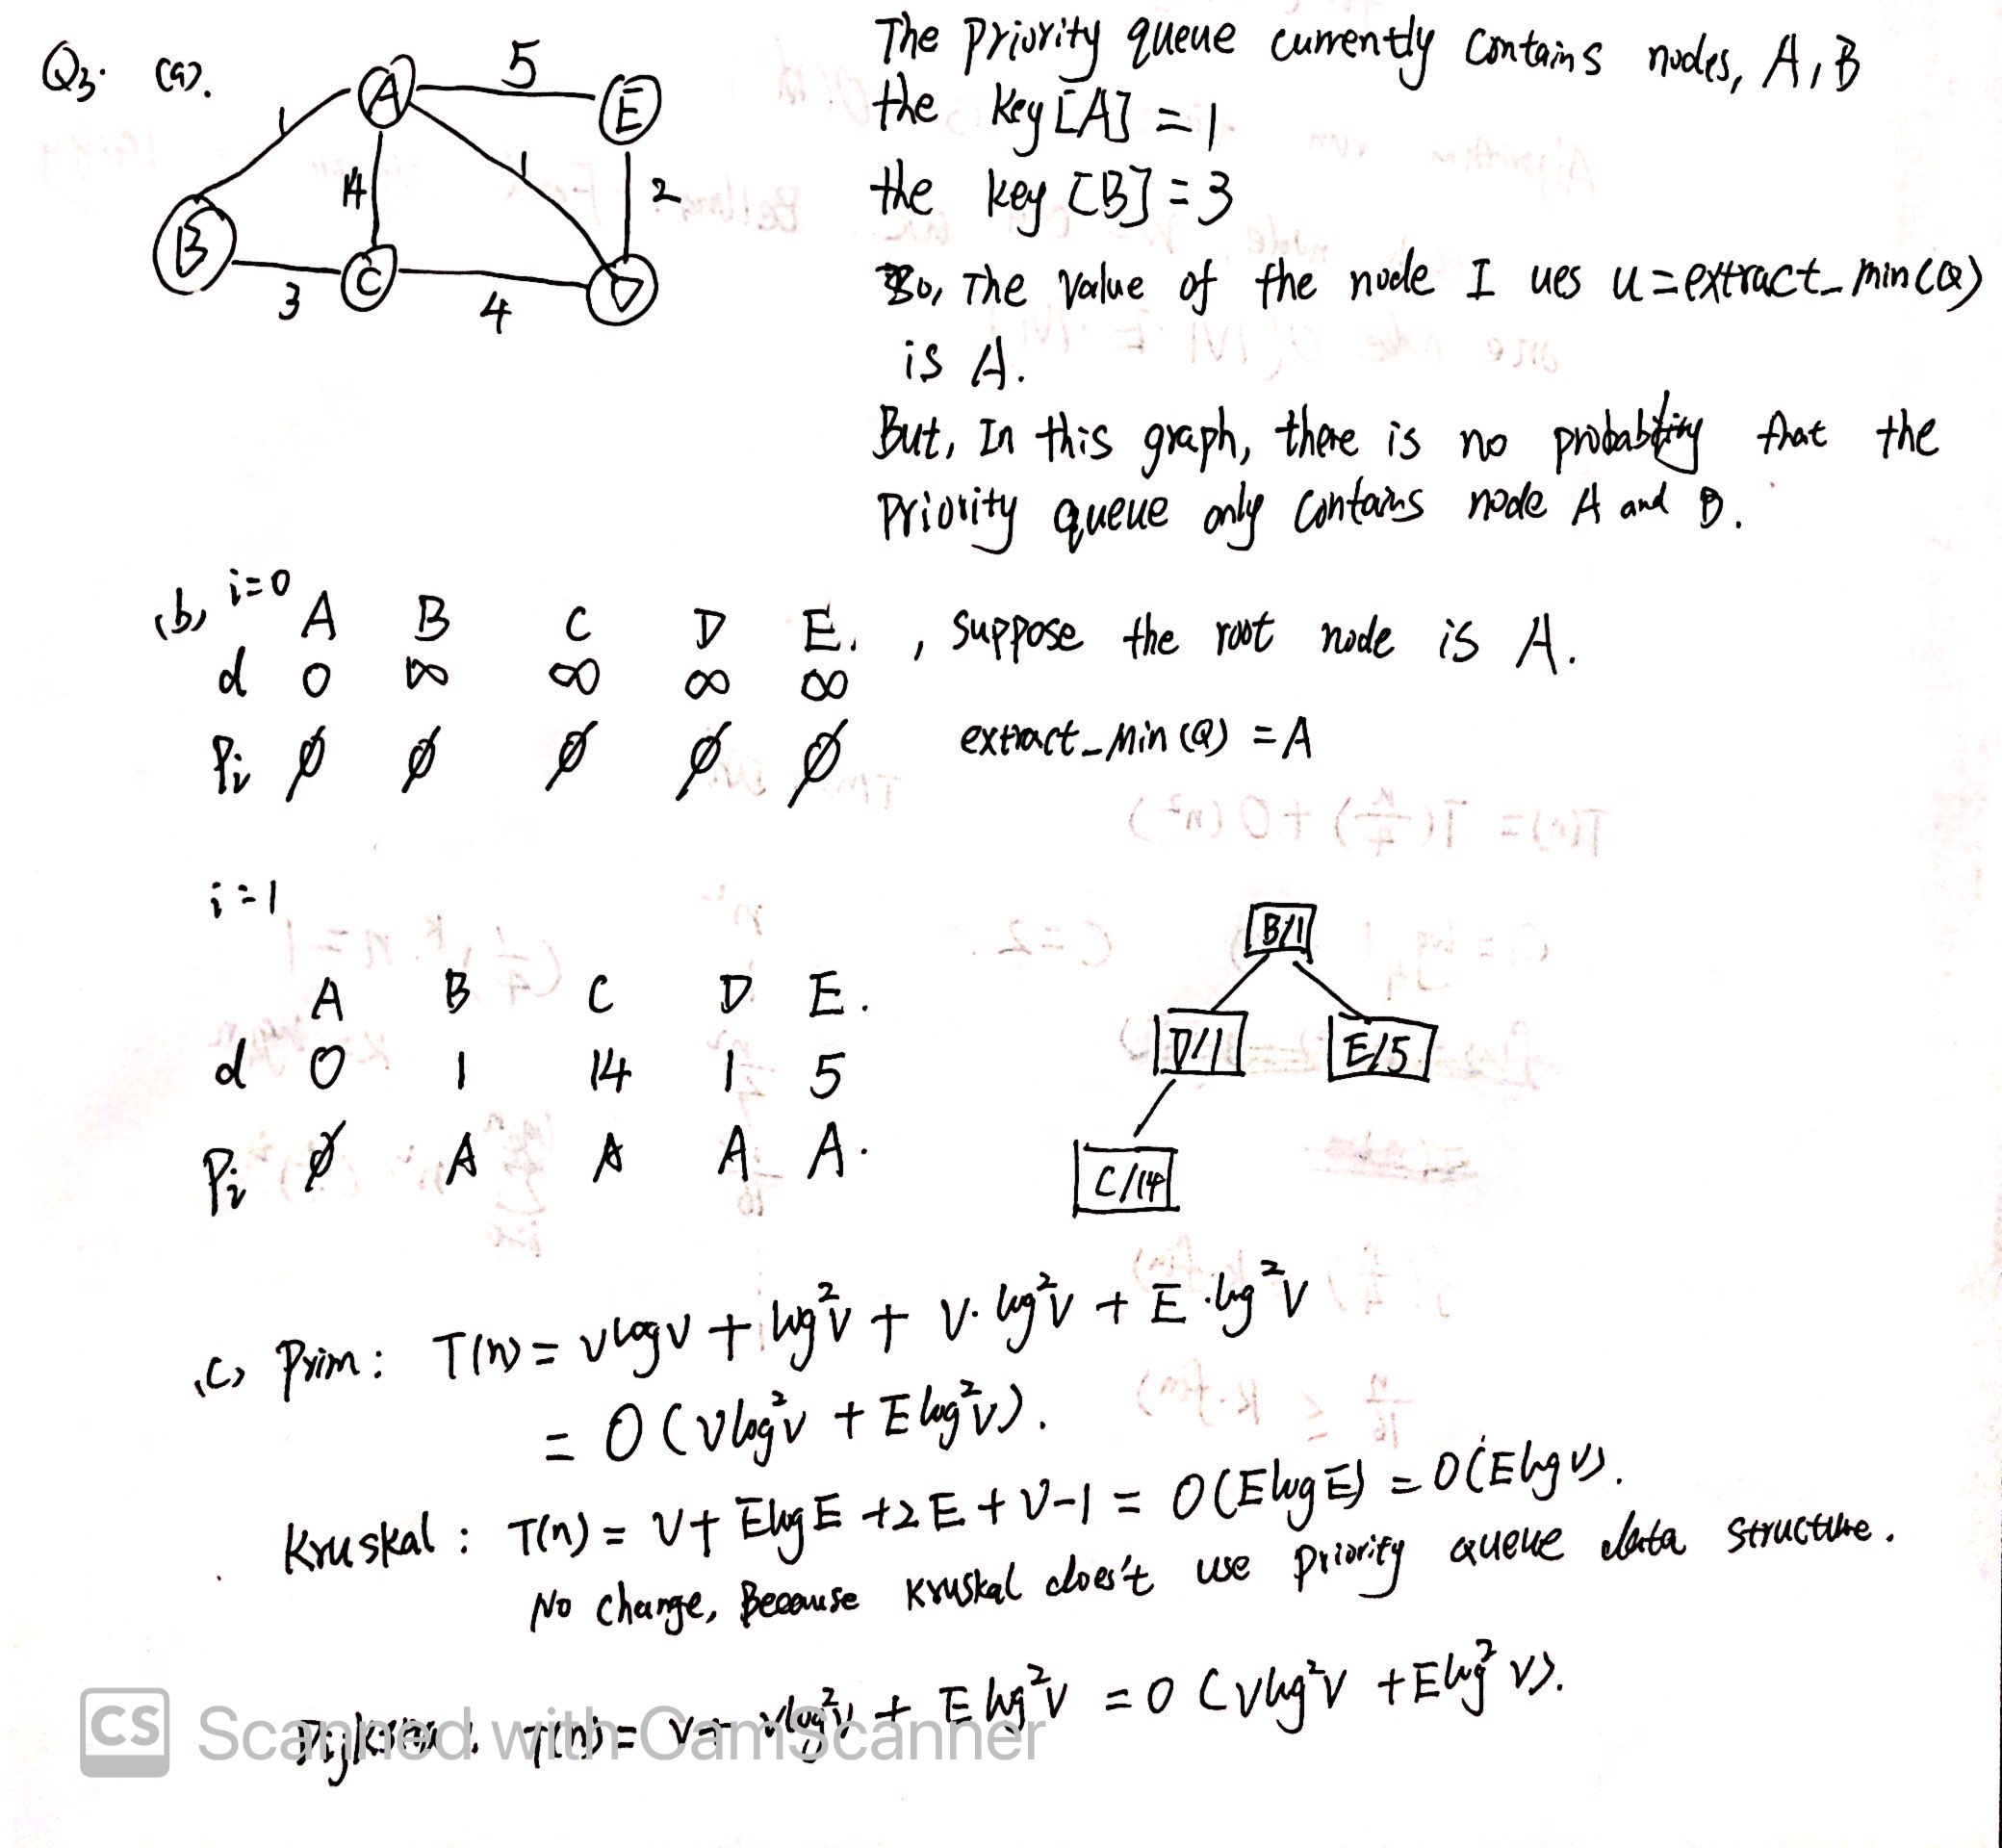 Q3. (a).
5
A
E
1
14
1
2
B
C
D
3
4
The Priority queue currently Contains nodes, A, B
the key [A] = 1
the key [B] = 3
So, The value of the node I ues u = extract_min(Q)
is A.
But, In this graph, there is no probability that the
Priority queue only Contains node A and B.
(b) i=0
A B C D E. , suppose the root node is A.
d 0 ∞ ∞ ∞ ∞
Pi ∅ ∅ ∅ ∅ ∅ extract_Min (Q) = A
i=1
A B C D E.
d 0 1 14 1 5
Pi ∅ A A A A.
B/1
D/1 E/5
C/14
(c) Prim: T(n) = vlogv + log²v + v·log²v + E·log²v
= O(vlog²v + Elog²v).
Kruskal: T(n) = V + ElogE + 2E + V-1 = O(ElogE) = O(Elogv).
No change, Because Kruskal does't use Priority queue data structure.
Dijkstra: T(n) = V + vlog²v + Elog²v = O(vlog²v + Elog²v).
CS Scanned with CamScanner